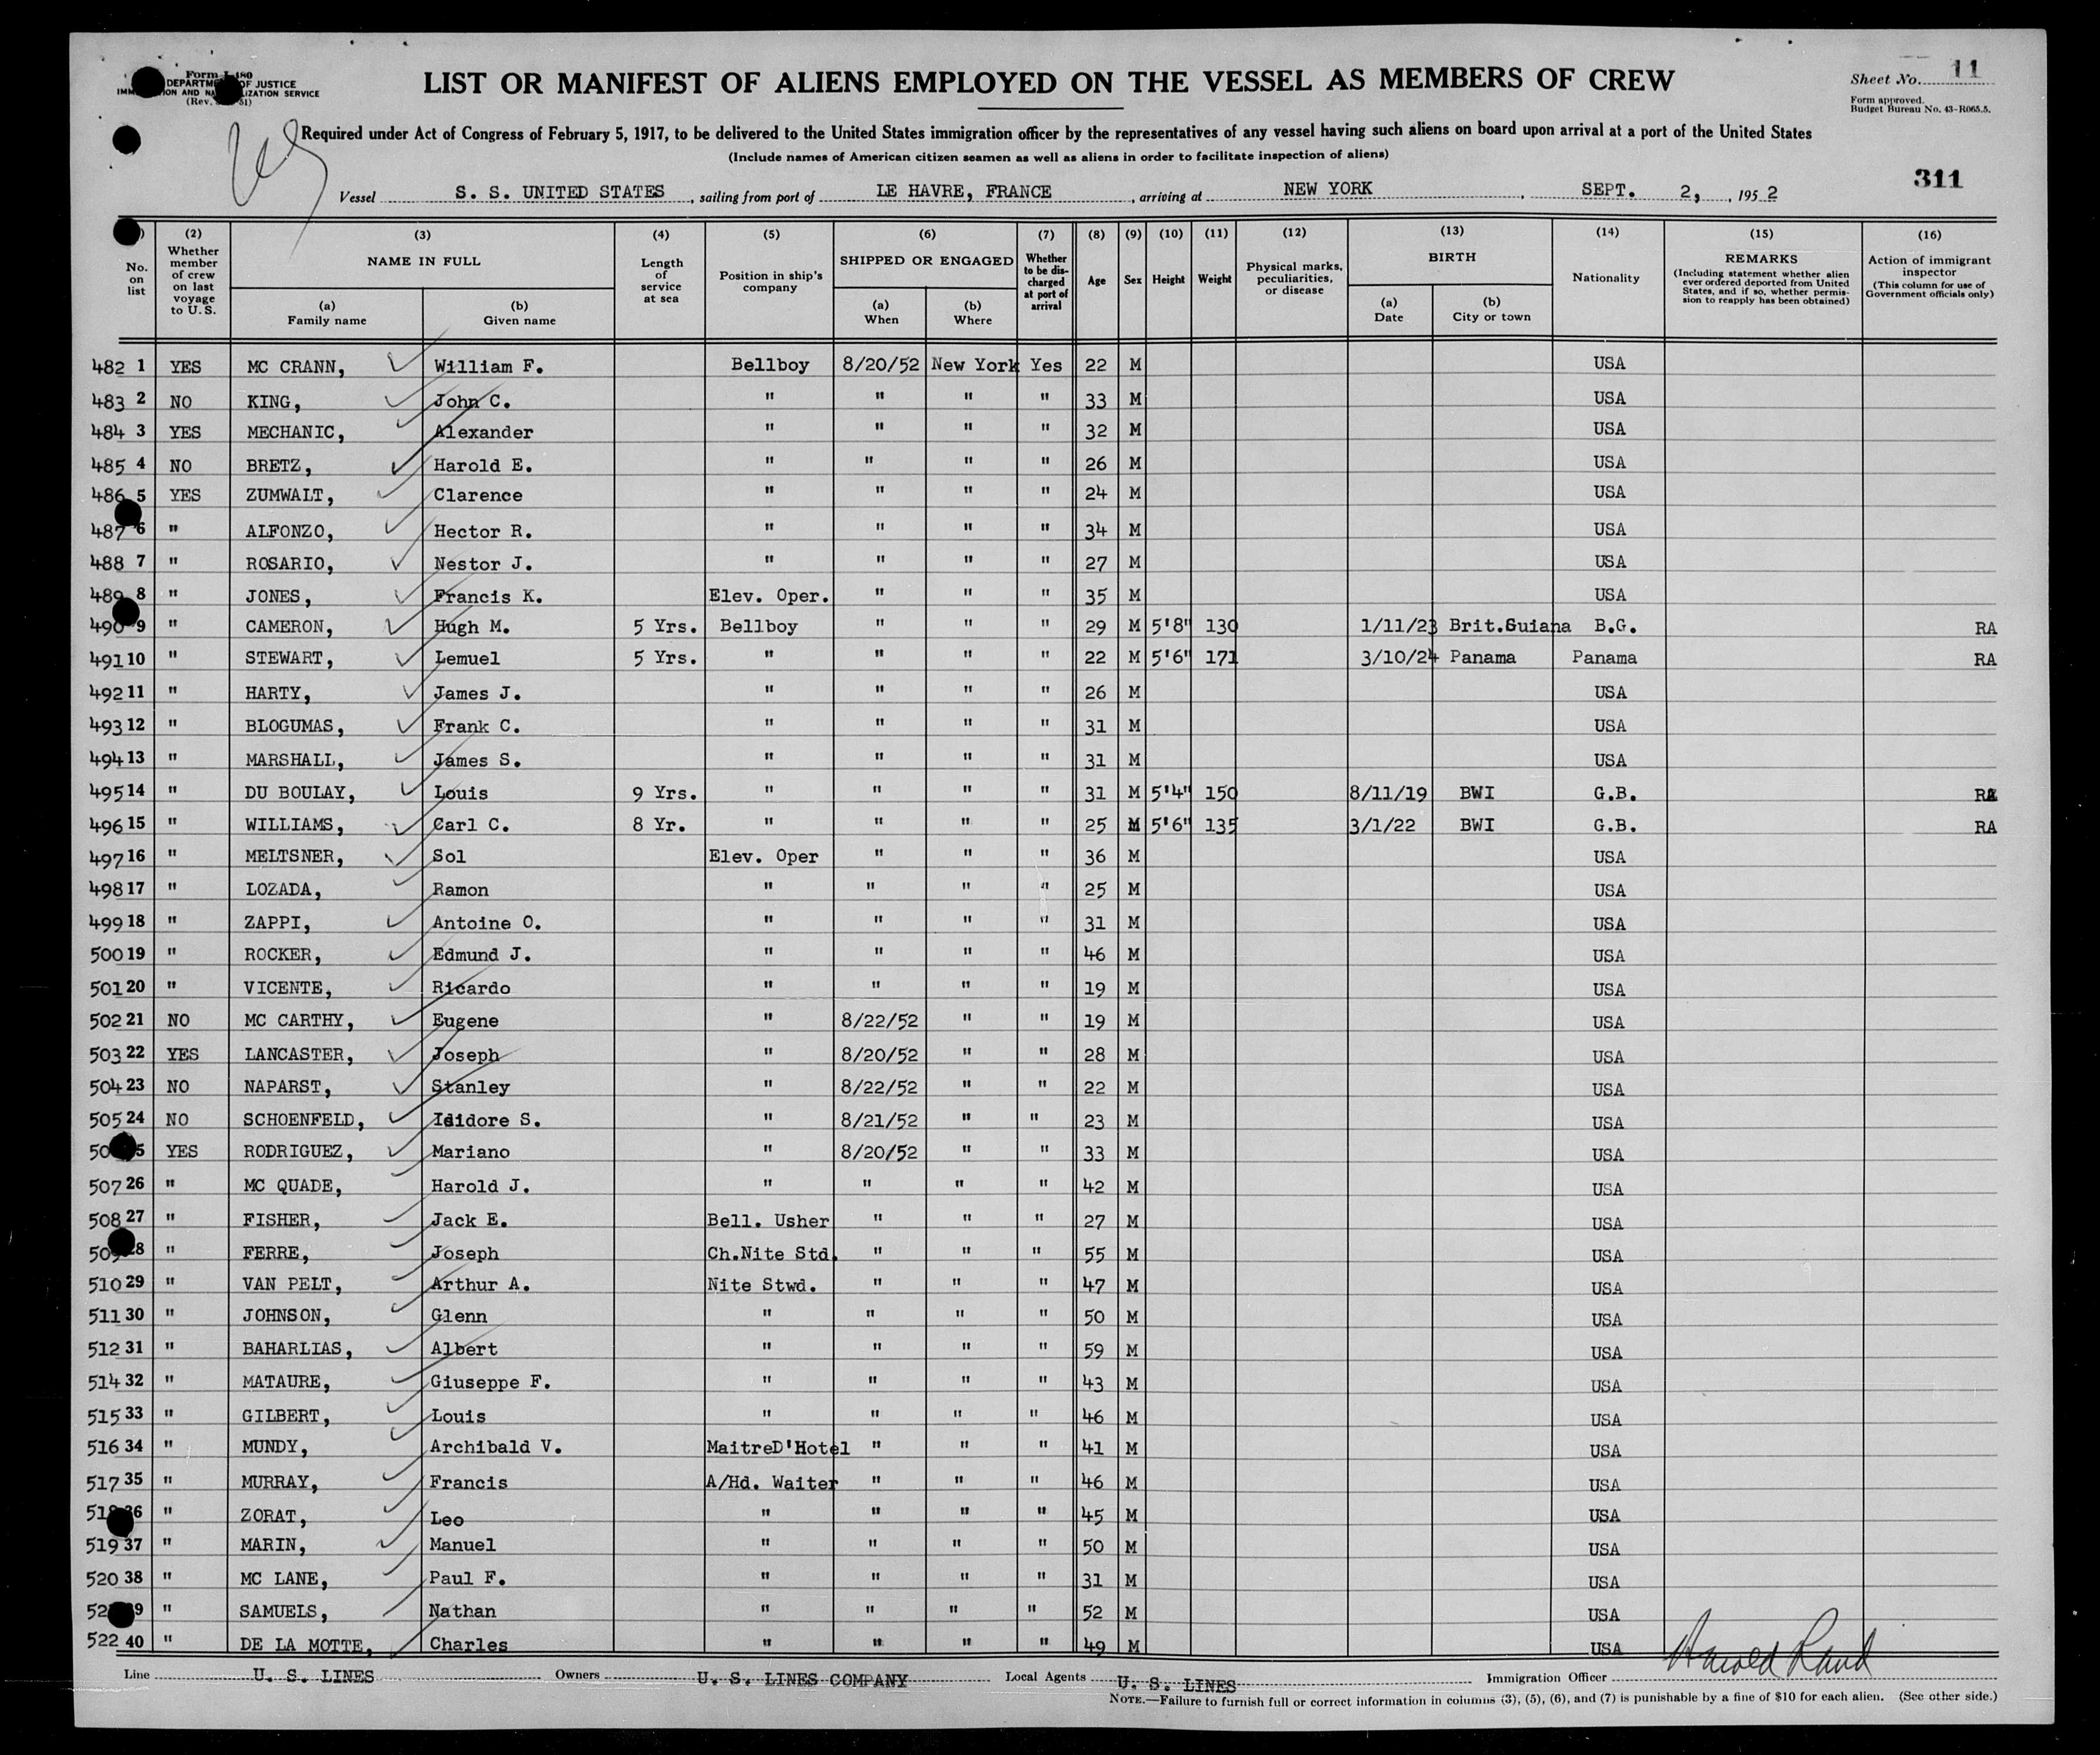 Form I-480
DEPARTMENT OF JUSTICE
IMMIGRATION AND NATURALIZATION SERVICE
(Rev. 51)
LIST OR MANIFEST OF ALIENS EMPLOYED ON THE VESSEL AS MEMBERS OF CREW
Sheet No. 11
Form approved.
Budget Bureau No. 43-R065.5.
Required under Act of Congress of February 5, 1917, to be delivered to the United States immigration officer by the representatives of any vessel having such aliens on board upon arrival at a port of the United States
(Include names of American citizen seamen as well as aliens in order to facilitate inspection of aliens)
311
Vessel S. S. UNITED STATES, sailing from port of LE HAVRE, FRANCE, arriving at NEW YORK, SEPT. 2, 1952
(2) (3) (4) (5) (6) (7) (8) (9) (10) (11) (12) (13) (14) (15) (16)
No. on list
Whether member of crew on last voyage to U. S.
NAME IN FULL
(a) Family name
(b) Given name
Length of service at sea
Position in ship's company
SHIPPED OR ENGAGED
(a) When
(b) Where
Whether to be discharged at port of arrival
Age
Sex
Height
Weight
Physical marks, peculiarities, or disease
BIRTH
(a) Date
(b) City or town
Nationality
REMARKS
(Including statement whether alien ever ordered deported from United States, and if so, whether permission to reapply has been obtained)
Action of immigrant inspector
(This column for use of Government officials only)
482 1 YES MC CRANN, William F. Bellboy 8/20/52 New York Yes 22 M USA
483 2 NO KING, John C. " " " " 33 M USA
484 3 YES MECHANIC, Alexander " " " " 32 M USA
485 4 NO BRETZ, Harold E. " " " " 26 M USA
486 5 YES ZUMWALT, Clarence " " " " 24 M USA
487 6 " ALFONZO, Hector R. " " " " 34 M USA
488 7 " ROSARIO, Nestor J. " " " " 27 M USA
489 8 " JONES, Francis K. Elev. Oper. " " " 35 M USA
490 9 " CAMERON, Hugh M. 5 Yrs. Bellboy " " " 29 M 5'8" 130 1/11/23 Brit.Guiana B.G. RA
491 10 " STEWART, Lemuel 5 Yrs. " " " " 22 M 5'6" 171 3/10/24 Panama Panama RA
492 11 " HARTY, James J. " " " " 26 M USA
493 12 " BLOGUMAS, Frank C. " " " " 31 M USA
494 13 " MARSHALL, James S. " " " " 31 M USA
495 14 " DU BOULAY, Louis 9 Yrs. " " " " 31 M 5'4" 150 8/11/19 BWI G.B. RA
496 15 " WILLIAMS, Carl C. 8 Yr. " " " " 25 M 5'6" 135 3/1/22 BWI G.B. RA
497 16 " MELTSNER, Sol Elev. Oper " " " 36 M USA
498 17 " LOZADA, Ramon " " " " 25 M USA
499 18 " ZAPPI, Antoine O. " " " " 31 M USA
500 19 " ROCKER, Edmund J. " " " " 46 M USA
501 20 " VICENTE, Ricardo " " " " 19 M USA
502 21 NO MC CARTHY, Eugene " 8/22/52 " " 19 M USA
503 22 YES LANCASTER, Joseph " 8/20/52 " " 28 M USA
504 23 NO NAPARST, Stanley " 8/22/52 " " 22 M USA
505 24 NO SCHOENFELD, Isidore S. " 8/21/52 " " 23 M USA
50 5 YES RODRIGUEZ, Mariano " 8/20/52 " " 33 M USA
507 26 " MC QUADE, Harold J. " " " " 42 M USA
508 27 " FISHER, Jack E. Bell. Usher " " " 27 M USA
509 28 " FERRE, Joseph Ch.Nite Std. " " " 55 M USA
510 29 " VAN PELT, Arthur A. Nite Stwd. " " " 47 M USA
511 30 " JOHNSON, Glenn " " " " 50 M USA
512 31 " BAHARLIAS, Albert " " " " 59 M USA
514 32 " MATAURE, Giuseppe F. " " " " 43 M USA
515 33 " GILBERT, Louis " " " " 46 M USA
516 34 " MUNDY, Archibald V. MaitreD'Hotel " " " 41 M USA
517 35 " MURRAY, Francis A/Hd. Waiter " " " 46 M USA
518 36 " ZORAT, Leo " " " " 45 M USA
519 37 " MARIN, Manuel " " " " 50 M USA
520 38 " MC LANE, Paul F. " " " " 31 M USA
52 9 " SAMUELS, Nathan " " " " 52 M USA
522 40 " DE LA MOTTE, Charles " " " " 49 M USA
Line U. S. LINES Owners U. S. LINES COMPANY Local Agents U. S. LINES Immigration Officer Harold Rand
NOTE.—Failure to furnish full or correct information in columns (3), (5), (6), and (7) is punishable by a fine of $10 for each alien. (See other side.)